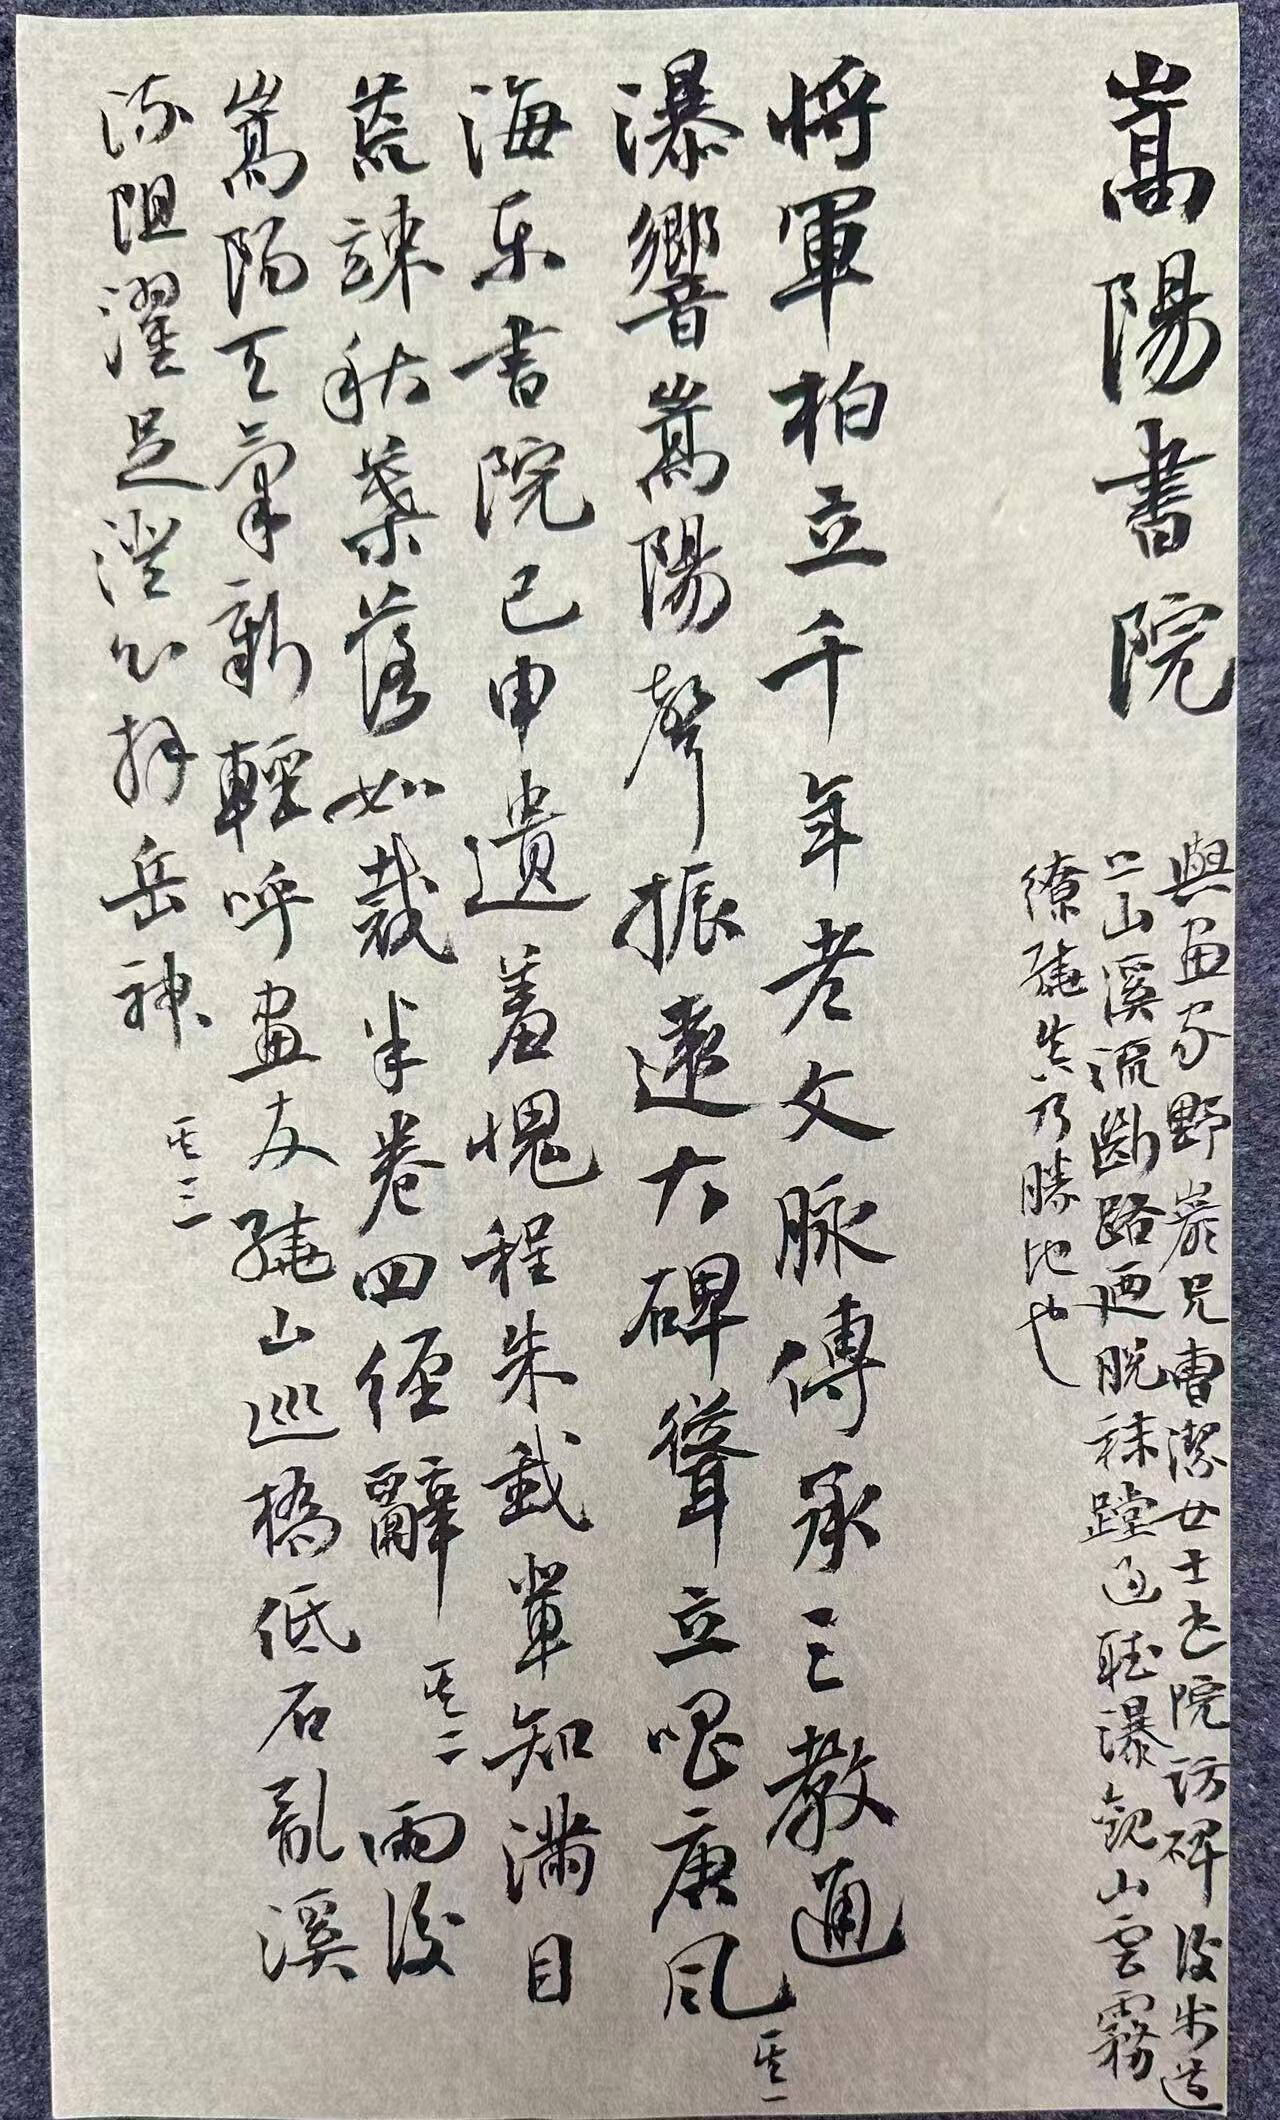 嵩陽書院
與畫家野巖兄曹潔女士書院訪碑後步道
上山溪流斷路廻脫袜蹚過聽瀑觀山雲霧
繚繞真乃勝地也
將軍柏立千年老文脉傳承三教通
瀑響嵩陽聲振遠大碑聳立唱唐風 其一
海東書院已申遺羞愧程朱我輩知滿目
荒疎秋葉落如裁半卷四經辭 其二 雨後
嵩陽天氣新輕呼畫友繞山巡橋低石亂溪
流阻濯足澄心拜岳神 其三